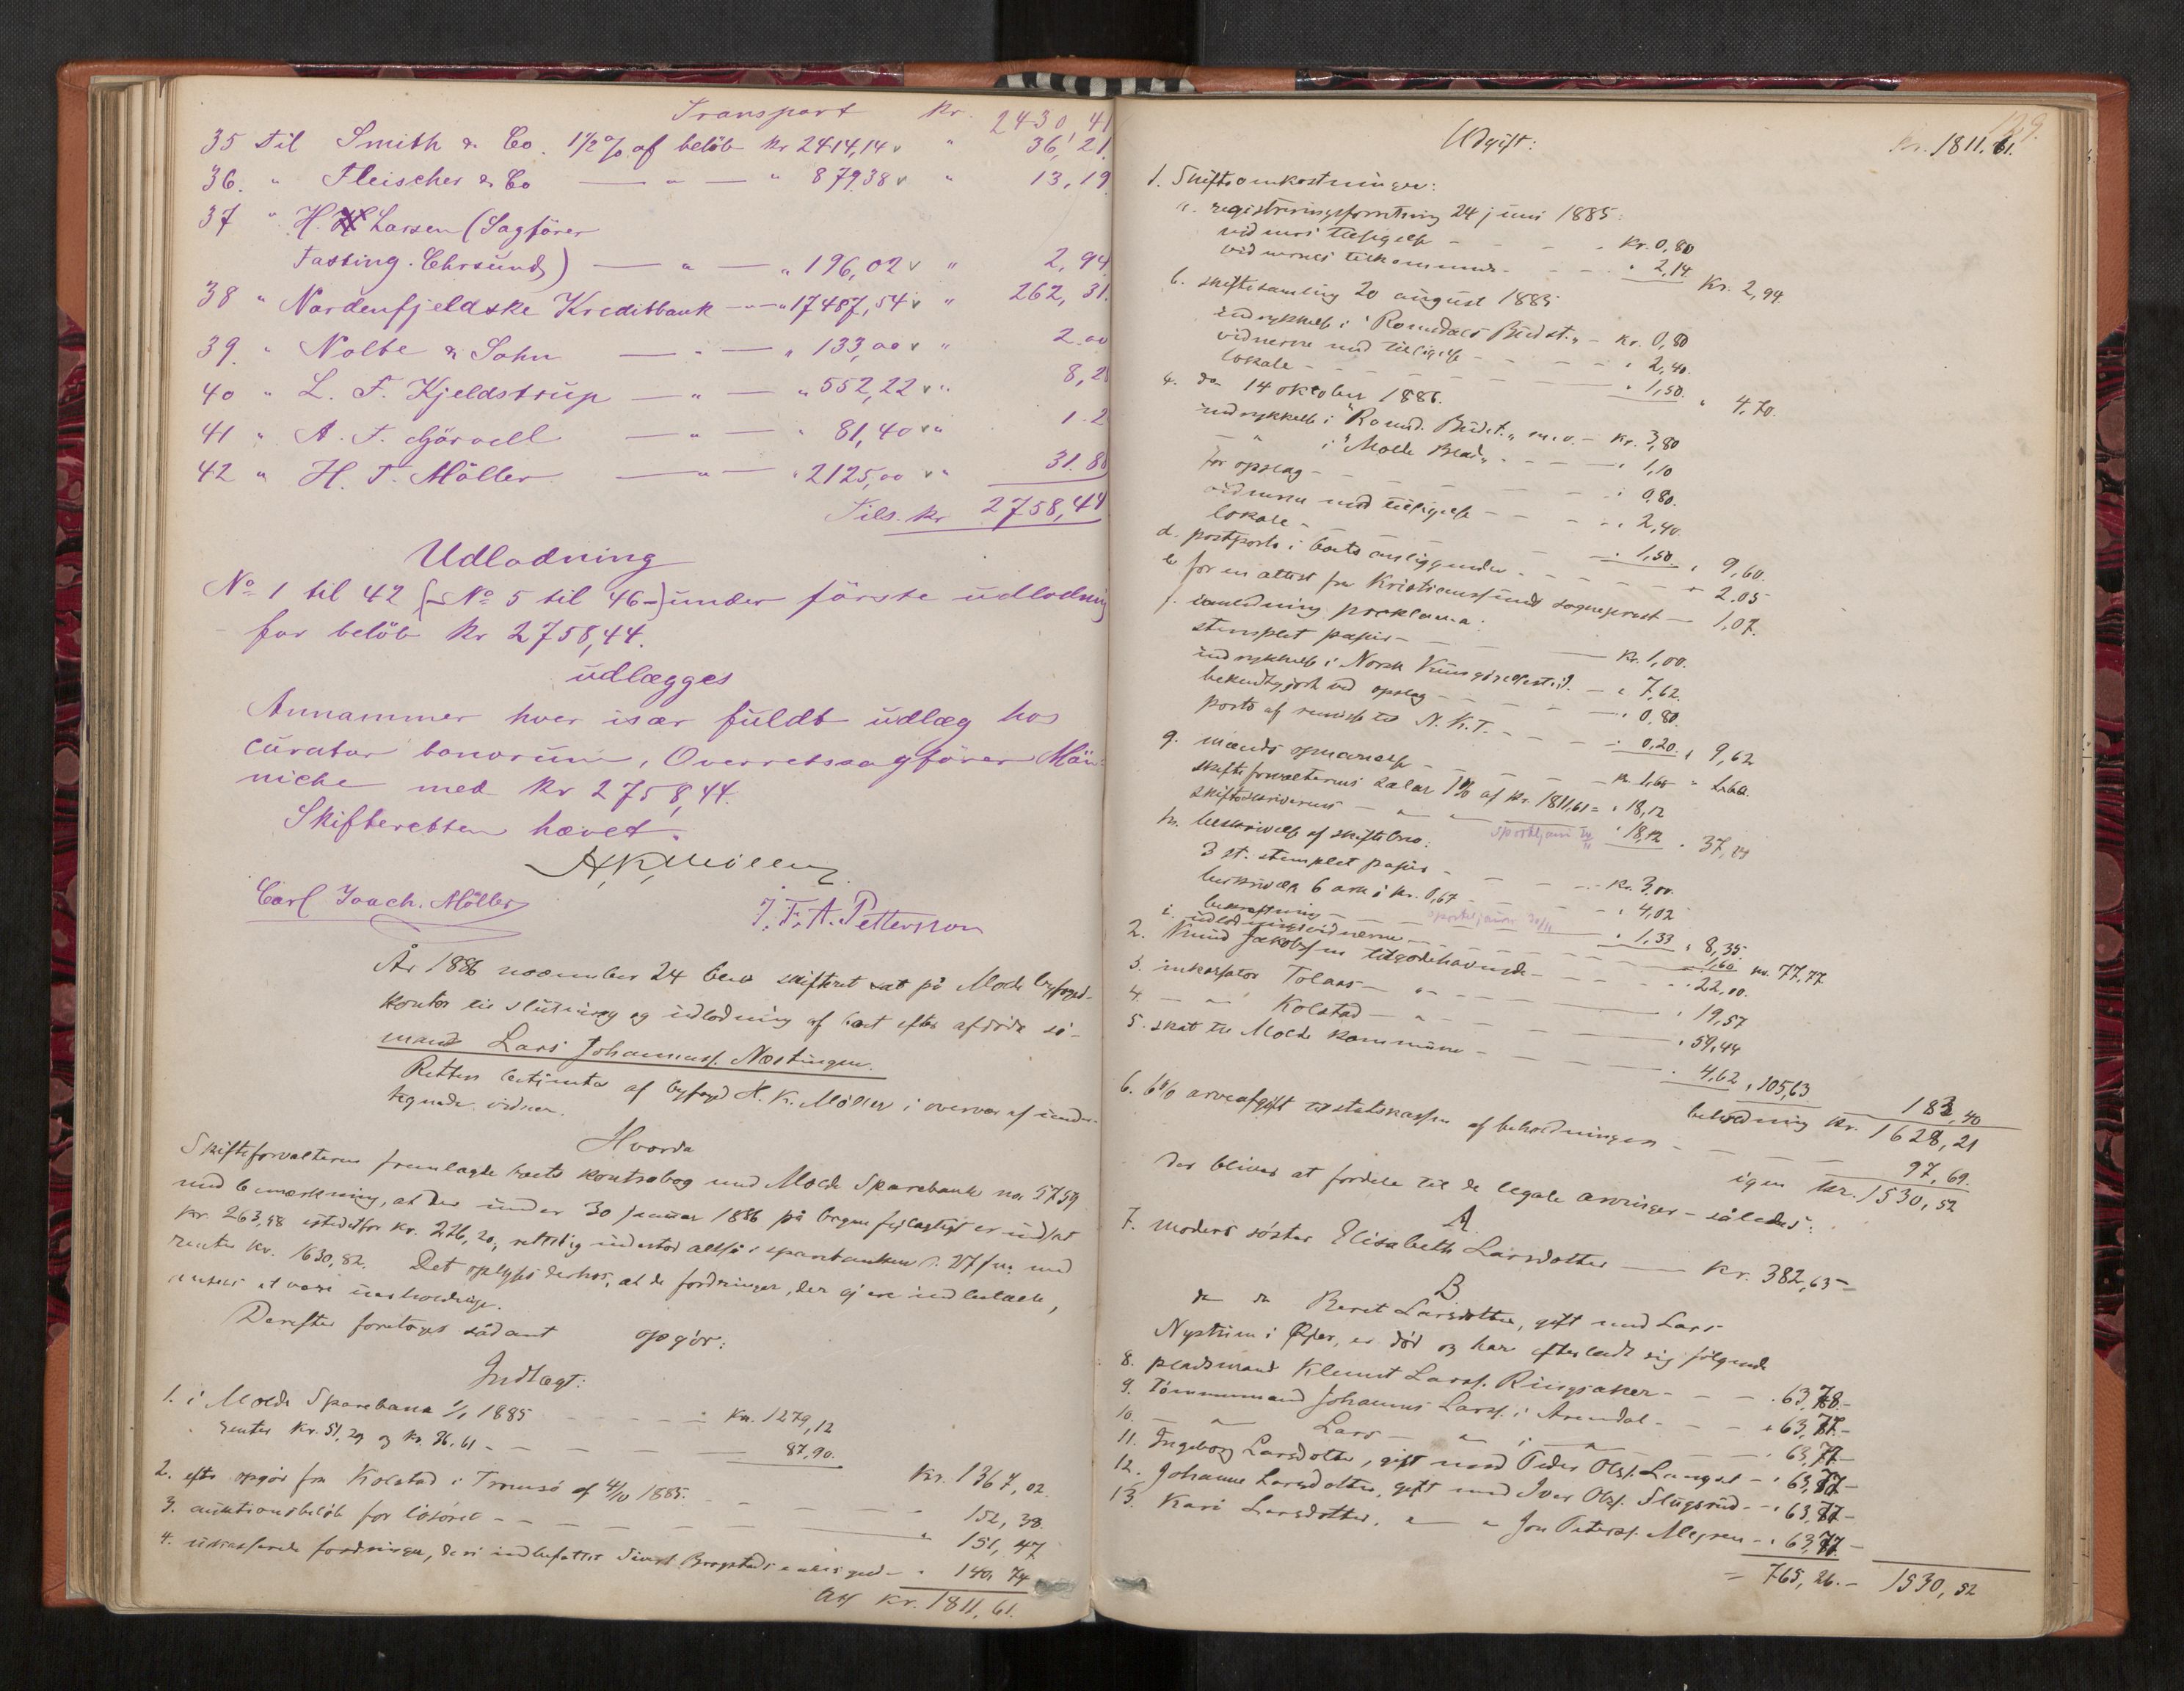 Transport Kr. 2430,41
35 til Smith & Co. 1½% af belöb kr 2414,14 v " 36,21.
36. " Fleischer & Co — " — " 879.38 v " 13,19
37 " H. Larsen (Sagförer
Fasting. Chrsund) — " — " 196,02 v " 2,94
38 " Nordenfjeldske Kreditbank — " — " 17487,54 v " 262,31.
39. " Nolte & Sohn — " — " 133,00 v " 2.00
40 " L. F. Kjeldstrup — " — " 552,22 v " 8,2
41 " A. F. — " — " 81,40 v " 1.2
42 " H. T. Möller — " — " 2125,00 v " 31.8
Tils. kr 2758,44
Udlodning
No 1 til 42 (— No 5 til 46 —) under förste udlodning
for belöb kr 2758,44.
udlægges
Annammer hver især fuldt udlæg hos
curator bonorum, Overretssagförer Mön-
niche med kr 2758,44.
Skifteretten hævet.
H. K. Möller
Carl Joach. Möller
J. F. A. Petterson
År 1886 november 24 blev skifteret sat på Molde byfoged-
kontor til slutning og udlodning af boet efter afdöde sö-
mand Lars Johanness. Nastingen.
Retten betjentes af byfoged H. K. Möller i overvær af under-
tegnede vidner.
Hvorda
Skifteforvalteren fremlagde boets kontrabog med Molde Sparebank no 5759
med bemærkning, at der under 30 januar 1886 på bogen fejlagtigt er indsat
kr. 263,98 istedetfor kr. 226,20, rettelig indestod altså i sparebanken med
renter kr. 1630,82. Det oplyses derhos, at de fordringer, der ej ere indbetalte,
ansees at være uerholdelige.
Derefter foretoges sådant opgör:
Indtægt:
1. i Molde Sparebank 1/1 1885 - - - - kr. 1279,12
renter kr. 51,29 og kr. 36,61 - - - - 87,90. kr. 1367,02.
2. efter opgör fra Kolstad i Tromsö af 4/10 1885. - - - 152,38.
3. auktionsbelöb for lösöret - - - - " 151,47
4. udestående fordringer, deri indbefattet Sivert - " 140,74
Alt kr. 1811,61.
129.
Udgift: Kr. 1811.61.
1. Skifteomkostninger:
a. registreringsforretning 24 juni 1885:
vidners tilsigelse - - - kr. 0,80
vidnernes tilkommende - - - " 2,14 kr. 2,94.
b. skiftesamling 20 august 1885
indrykkelse i "Romsdals Budst." - kr. 0,80
vidnerne med tilsigelse - - - " 2,40.
lokale - - - " 1,50. " 4,70.
c. do 14 oktober 1886.
indrykkelse i "Romsd. Budst." m.v. - kr. 3,80
— " — i "Molde Blad" - - - " 1,10
for opslag - - - " 0,80.
vidnerne med tilsigelse - - - " 2,40
lokale - - - " 1,50. " 9,60.
d. postporto i boets anliggender - - - " 2.05
e. for en attest fra Kristianssunds sogneprest — 1,07.
f. proklama:
stemplet papir - — kr. 1,00.
indrykkelse i Norsk Kundgörelsestid. - " 7,62.
bekendtgjort ved opslag - - - " 0,80.
porto af remisse til N. K. T. - - - " 0,20. " 9,62
g. mands opnævnelse - - - kr. 1,60 " 1,60.
skifteforvalterens salær 1% af kr. 1811,61 = " 18,12
skifteskriverens — " — " 18,12 " 37,
h. beskrivelse af skiftebrev:
3 st. stemplet papir - - - kr. 3,00.
beskrivelse 6 ark à kr. 0,67 - - - " 4,02
bekræftning - - - " 1,33 " 8,35.
i. udlodningsvidnerne - - - 1,60 kr. 77,77
2. Knud Jakobsens tilgodehavende - - - 22,00.
3. inkassator Tolaas - - - " 19,57
4. — " — Kolstad - - - " 59,44
5. skat til Molde kommune - - - " 4,62 " 105,63 183,40
beholdning kr. 1628,21
6. 6% arveafgift til statskassen af beholdningen - - - 97,69.
igen kr. 1530,52
der bliver at fordele til de legale arvinger - således:
A
7. moders söster Elisabeth Larsdotter — kr. 382,63 -
B
do do Beret Larsdotter, gift med Lars
Nystuen i Öjer, er död og har efterladt sig fölgende
8. pladsmand Klemet Larss. Ringsaker - - - " 63,78 -
9. Tömmermand Johannes Larss. i Arendal - - - " 63,77 -
10. — " — Lars — " — i — " — " 63,77 -
11. Ingeborg Larsdotter, gift med Peder Ols. - " 63,77 -
12. Johanne Larsdotter, gift med Iver Ols. - " 63,77 -
13. Kari Larsdotter, " " Jon Peterss. - " 63,77 -
= 765,26. - 1530,52